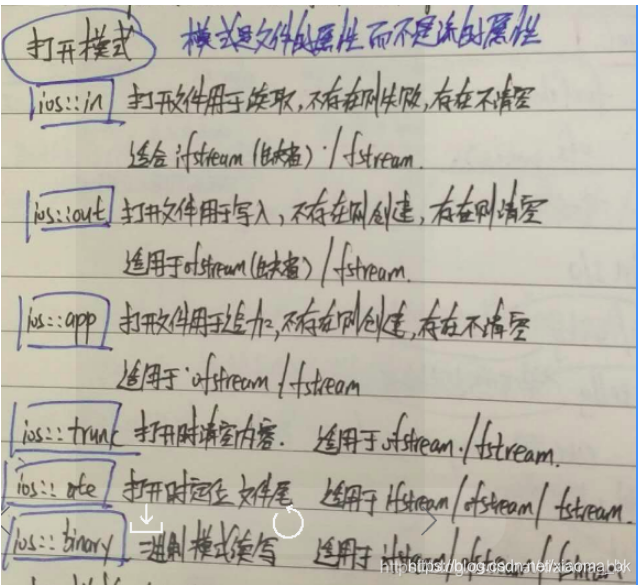 打开模式 模式是文件的属性而不是流的属性
ios::in 打开文件用于读取,不存在则失败,存在不清空
适合ifstream(缺省)/fstream.
ios::out 打开文件用于写入,不存在则创建,存在则清空
适用于ofstream(缺省)/fstream.
ios::app 打开文件用于追加,不存在则创建,存在不清空
适用于ofstream/fstream
ios::trunc 打开时清空内容. 适用于ofstream/fstream.
ios::ate 打开时定位文件尾 适用于ifstream/ofstream/fstream.
ios::binary 二进制模式读写 适用于ifstream/ofstream/
https://blog.csdn.net/xiaoma_bk